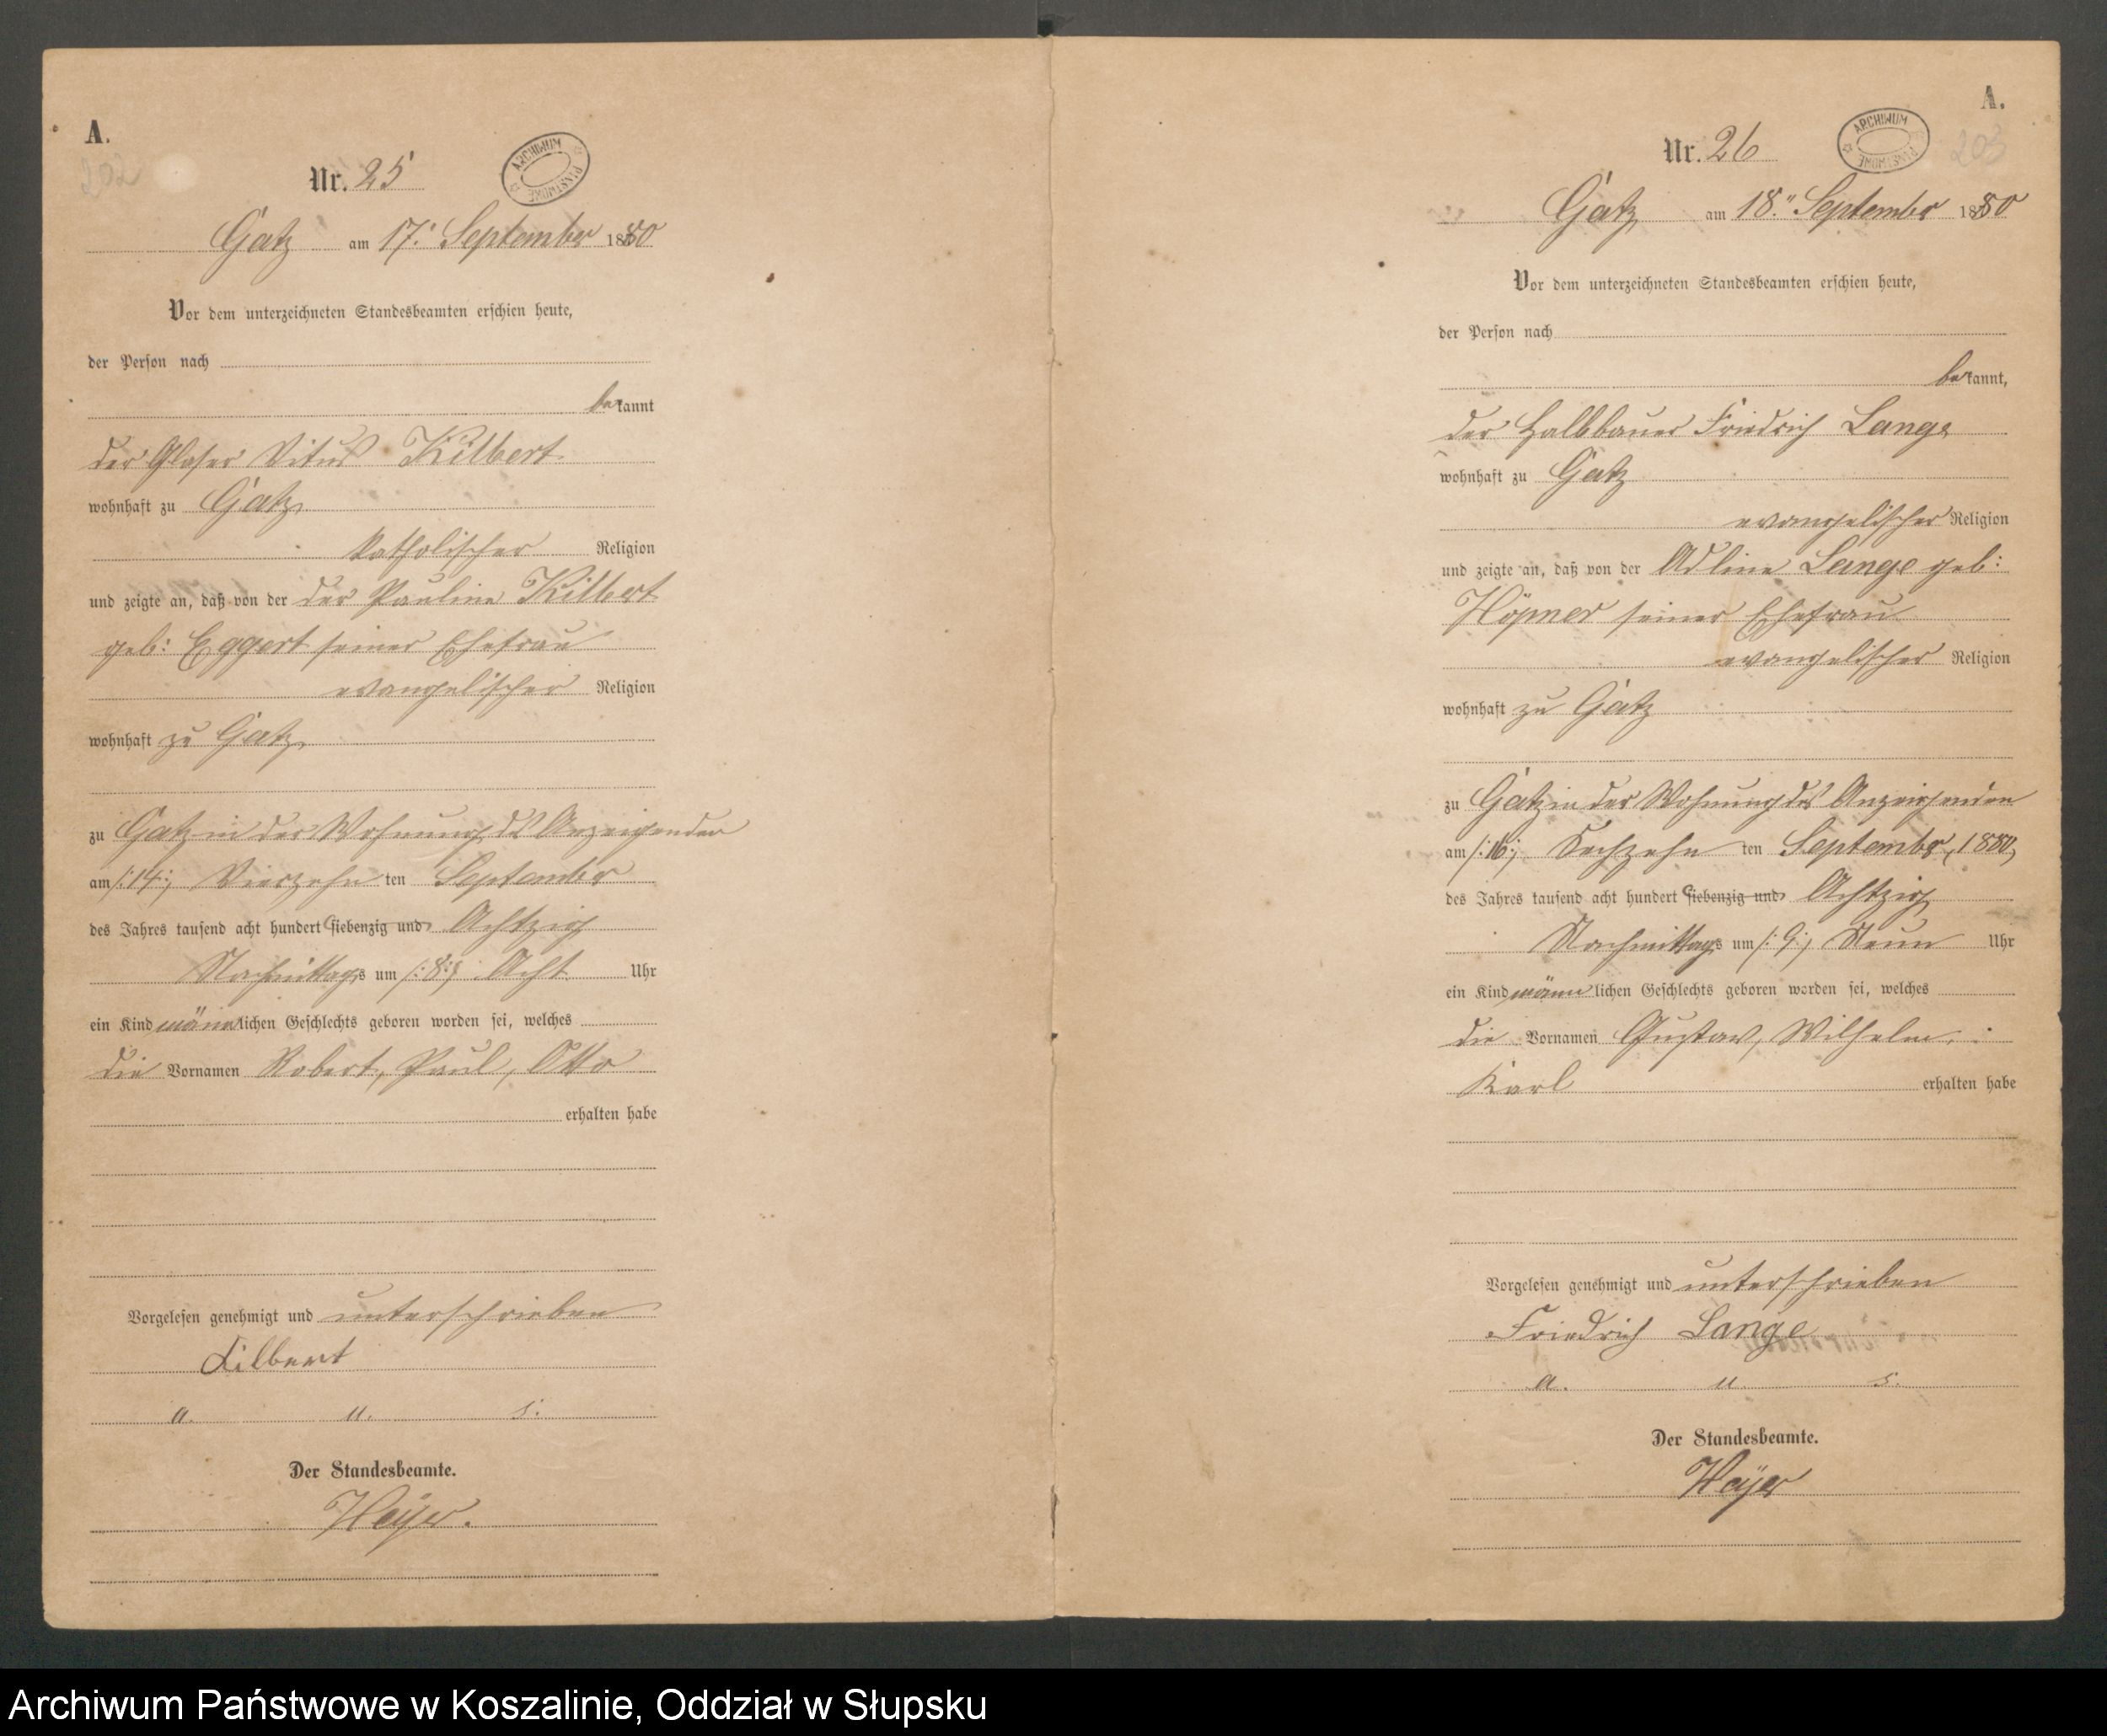 A.
202
Nr. 25
ARCHIWUM PAŃSTWOWE
Gatz am 17. September 1880
Vor dem unterzeichneten Standesbeamten erschien heute,
der Person nach
bekannt
der Glaser Vitus Kilbert
wohnhaft zu Gatz
katholischer Religion
und zeigte an, daß von der der Pauline Kilbert
geb: Eggert seiner Ehefrau
evangelischer Religion
wohnhaft zu Gatz,
zu Gatz in der Wohnung des Anzeigenden
am /:14:/ Vierzehn ten September
des Jahres tausend acht hundert siebenzig und Achtzig
Nachmittags um /:8:/ Acht Uhr
ein Kind männlichen Geschlechts geboren worden sei, welches
die Vornamen Robert, Paul, Otto
erhalten habe
Vorgelesen genehmigt und unterschrieben
Kilbert
a. u. s.
Der Standesbeamte.
Heyer.
A.
203
Nr. 26
ARCHIWUM PAŃSTWOWE
Gatz am 18. September 1880
Vor dem unterzeichneten Standesbeamten erschien heute,
der Person nach
bekannt,
der Halbbauer Friedrich Lange
wohnhaft zu Gatz
evangelischer Religion
und zeigte an, daß von der Adline Lange geb:
Höpner seiner Ehefrau
evangelischer Religion
wohnhaft zu Gatz
zu Gatz in der Wohnung des Anzeigenden
am /:16:/ Sechzehn ten September, 1880,
des Jahres tausend acht hundert siebenzig und Achtzig
Nachmittags um /:9:/ Neun Uhr
ein Kind männlichen Geschlechts geboren worden sei, welches
die Vornamen Gustav, Wilhelm,
Karl erhalten habe
Vorgelesen genehmigt und unterschrieben
Friedrich Lange
a. u. s.
Der Standesbeamte.
Heyer
Archiwum Państwowe w Koszalinie, Oddział w Słupsku